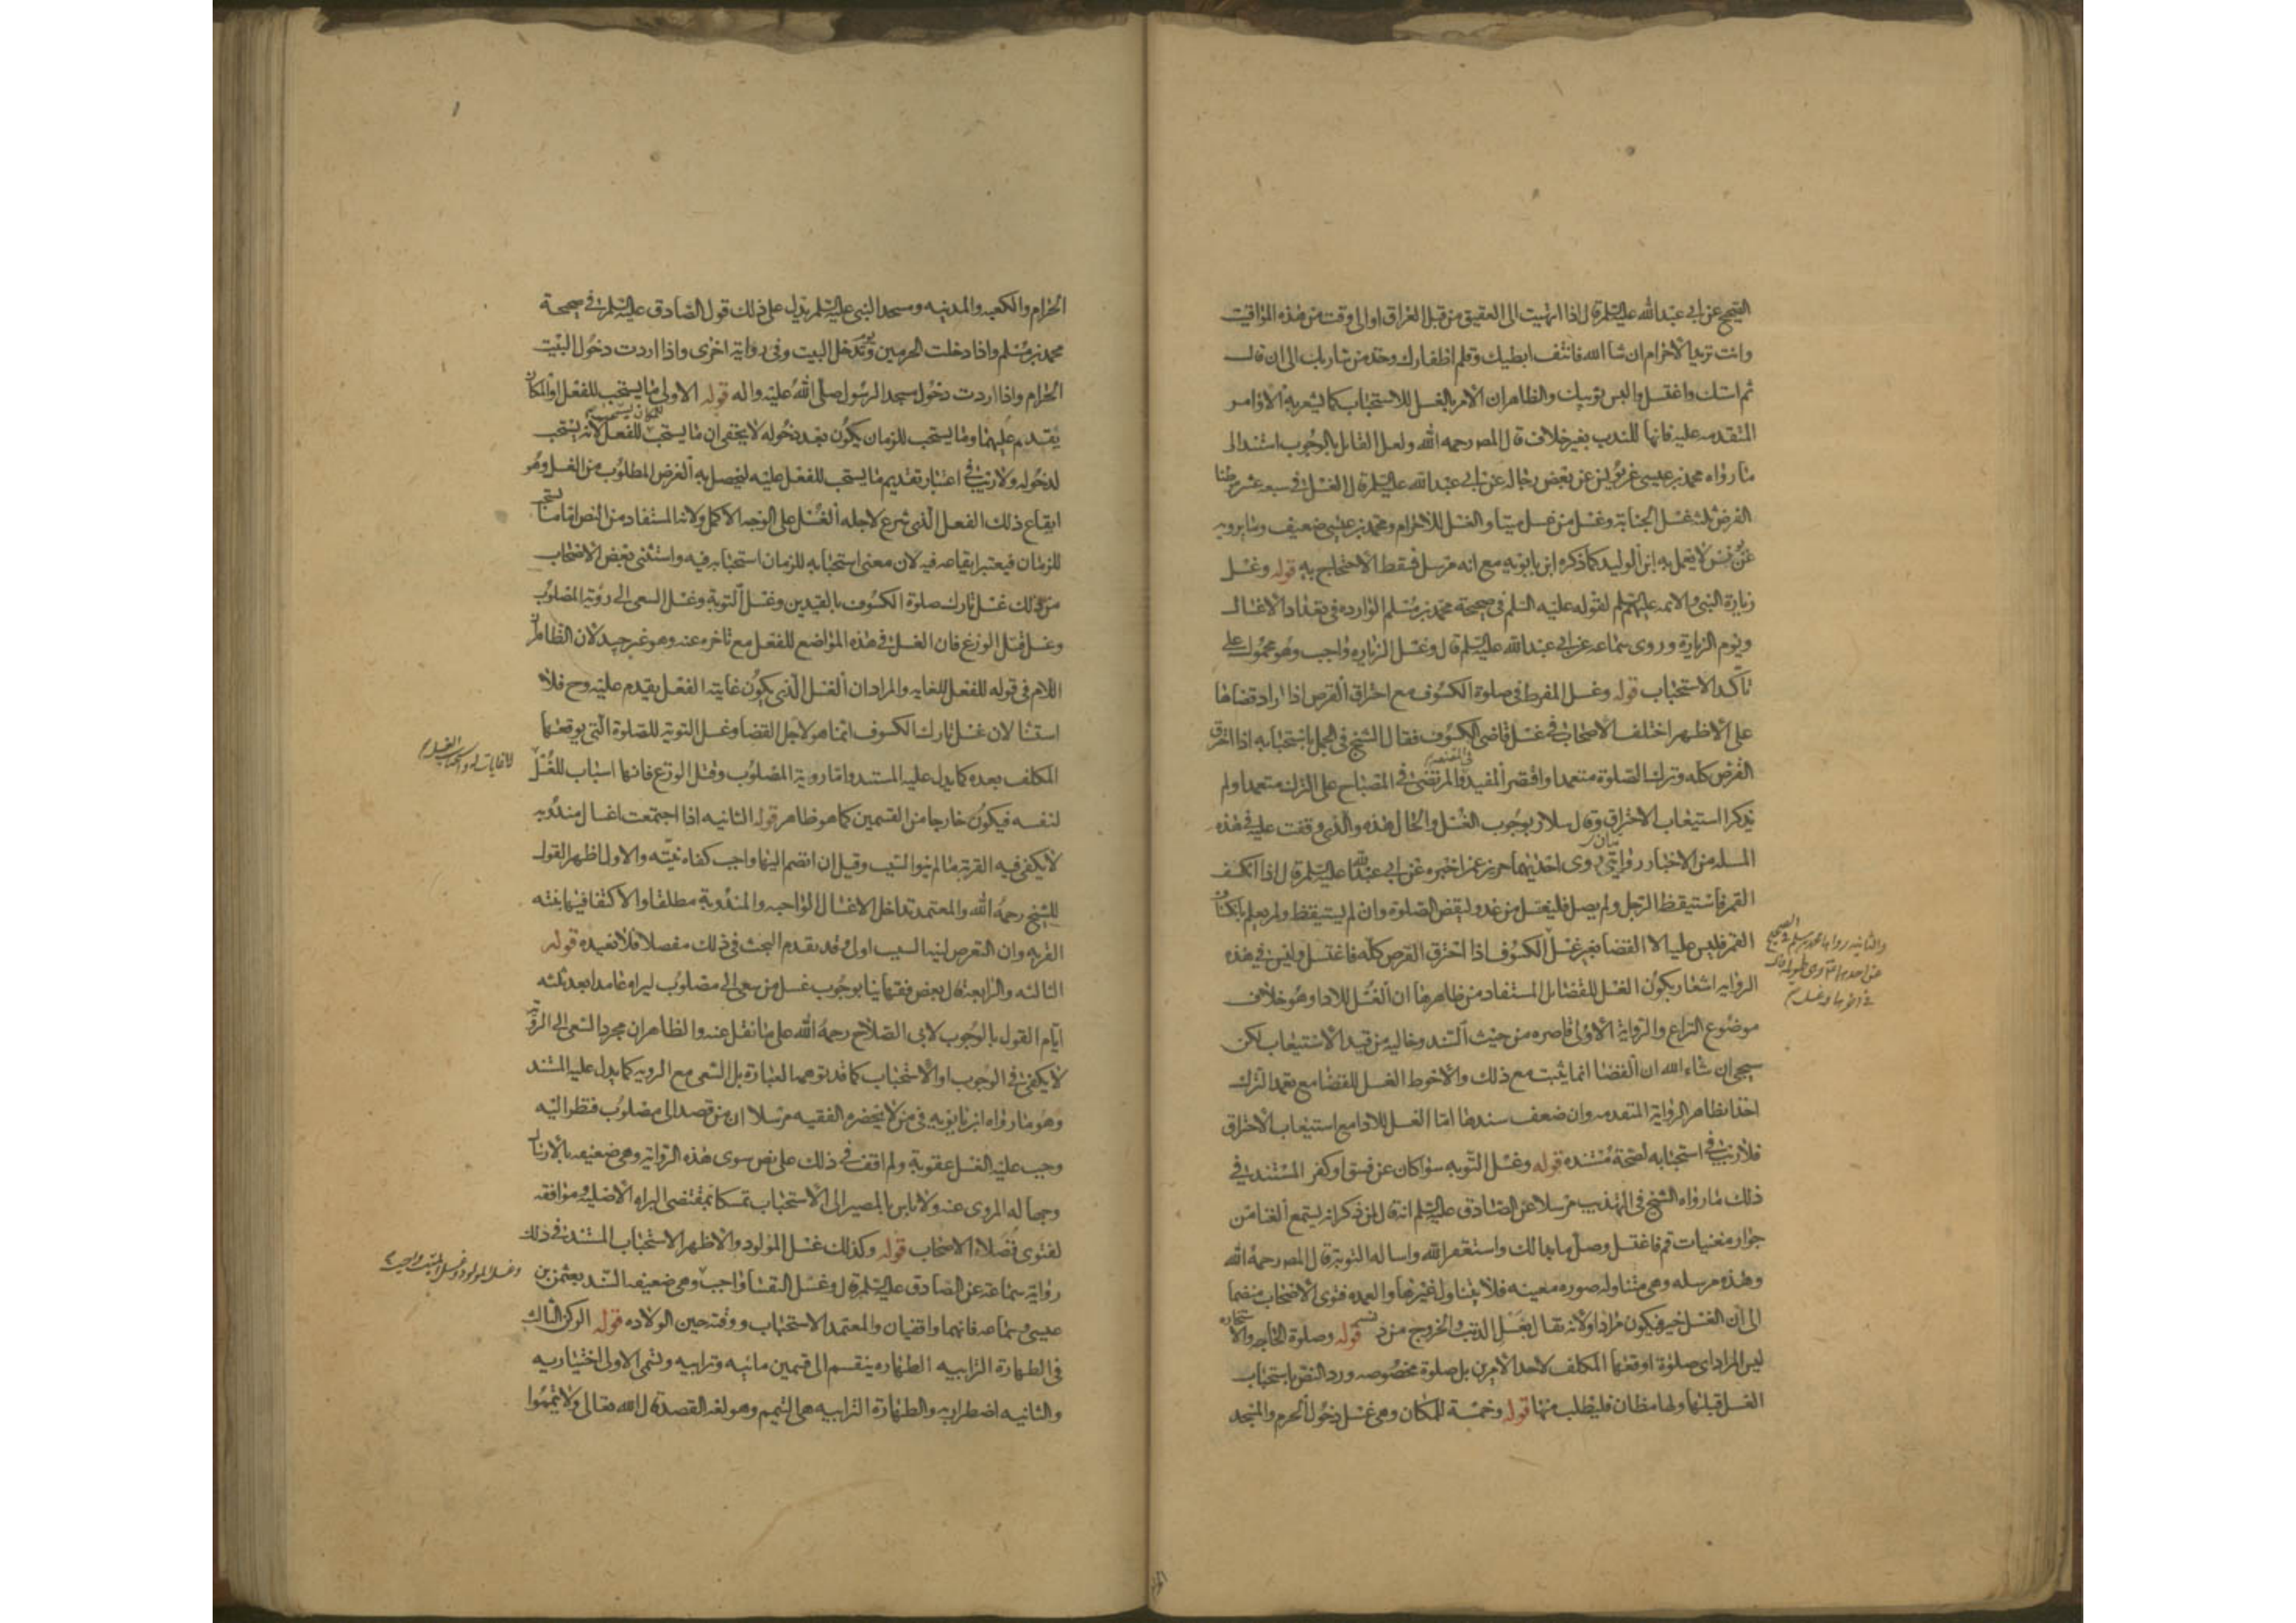 الصحيح عن ابي عبد الله عليه السلم قال اذا انتهيت الى العقيق من قبل العراق او الى وقت من هذه المواقيت
وانت تريد الاحرام ان شا الله فانتف ابطيك وقلم اظفارك وخذ من شاربك الى ان قال
ثم استك واغتسل والبس ثوبيك والظاهر ان الامر بالغسل للاستحباب كما يشعر به الاوامر
المتقدمه عليه فانها للندب بغير خلاف قال المص رحمه الله ولعل القايل بالوجوب استند الى
ما رواه محمد بن عيسى عن يونس عن بعض رجاله عن ابي عبد الله عليه السلم قال الغسل في سبعه عشر موطنا
الفرض ثلثه غسل الجنابة وغسل من غسل ميتا والغسل للاحرام ومحمد بن عيسى ضعيف وما يرويه
عن يونس لا يعمل به ابن الوليد كما ذكره ابن بابويه مع انه مرسل فسقط الاحتجاج به قوله وغسل
زيارة النبي والايمه عليهم السلم لقوله عليه السلم في صحيحة محمد بن مسلم الوارده في تعداد الاغسال
ويوم الزيارة وروى سماعه عن ابي عبد الله عليه السلم قال وغسل الزياره واجب وهو محمول على
تاكد الاستحباب قوله وغسل المفرط في صلوة الكسوف مع احتراق القرص اذا اراد قضاها
على الاظهر اختلف الاصحاب في غسل قاضي الكسوف فقال الشيخ في الجمل باستحبابه اذا احترق
القرص كله وترك الصلوة متعمدا واقتصر المفيد في المقنعه والمرتضى في المصباح على الترك متعمدا ولم
يذكرا استيعاب الاحتراق وقال سلار بوجوب الغسل والحال هذه والذي وقفت عليه في هذه
المسله من الاخبار روايتان روى احديهما حريز عمن اخبره عن ابي عبد الله عليه السلم قال اذا انكسف
القمر فاستيقظ الرجل ولم يصل فليغتسل من غد وليقض الصلوة وان لم يستيقظ ولم يعلم بانكساف
القمر فليس عليه الا القضا بغير غسل الكسوف اذا احترق القرص كله فاغتسل وليس في هذه
والثانيه رواها محمد بن مسلم في الصحيح
عن احدهما وهي طويله قال
في اخرها وغسل
الروايه اشعار بكون الغسل للقضا بل المستفاد من ظاهرها ان الغسل للادا وهو خلاف
موضوع النزاع والرواية الاولى قاصره من حيث السند وخاليه من قيد الاستيعاب لكن
سيجي ان شاء الله ان القضا انما يثبت مع ذلك والاحوط الغسل للقضا مع تعمد الترك
اخذا بظاهر الرواية المتقدمه وان ضعف سندها اما الغسل للادا مع استيعاب الاحتراق
فلا ريب في استحبابه لصحة مستنده قوله وغسل التوبه سوا كان عن فسق او كفر المستند في
ذلك ما رواه الشيخ في التهذيب مرسلا عن الصادق عليه السلم انه قال لمن ذكر انه يستمع الغنا من
جوار مغنيات قم فاغتسل وصل ما بدا لك واستغفر الله واساله التوبة قال المص رحمه الله
وهذه مرسله وهي متناوله صوره معينه فلا يتناول غيرها والعمده فتوى الاصحاب منضما
الى ان الغسل خير فيكون مرادا ولانه تفال بغسل الذنب والخروج من دنسه قوله وصلوة الحاجه والاستخاره
ليس المراد اي صلوة اوقعها المكلف لاحد الامرين بل صلوة مخصوصه ورد النص باستحباب
الغسل قبلها ولها مظان فليطلب منها قوله وخمسة للمكان وهي غسل دخول الحرم والمسجد
الحرام والكعبه والمدينه ومسجد النبي عليه السلم يدل على ذلك قول الصادق عليه السلم في صحيحة
محمد بن مسلم واذا دخلت الحرمين ويوم تدخل البيت وفي رواية اخرى واذا اردت دخول البيت
الحرام واذا اردت دخول مسجد الرسول صلى الله عليه واله قوله الاولى ما يستحب للفعل او المكان
يقدم عليهما وما يستحب للزمان يكون بعد دخوله لا يخفى ان ما يستحب للمكان يستحب للفعل لانه يستحب
لدخوله ولا ريب في اعتبار تقديم ما يستحب للفعل عليه ليحصل به الغرض المطلوب من الغسل وهو
ايقاع ذلك الفعل الذي شرع لاجله الغسل على الوجه الاكمل ولانه المستفاد من النص اما ما يستحب
للزمان فيعتبر ايقاعه فيه لان معنى استحبابه للزمان استحبابه فيه واستثنى بعض الاصحاب
من ذلك غسل تارك صلوة الكسوف بالقيدين وغسل التوبة وغسل السعي الى روية المصلوب
وغسل قتل الوزغ فان الغسل في هذه المواضع للفعل مع تاخره عنه وهو غير جيد لان الظاهر ان
اللام في قوله للفعل للغايه والمراد ان الغسل الذي يكون غايته الفعل يقدم عليه وح فلا
استثنا لان غسل تارك الكسوف انما هو لاجل القضا وغسل التوبة للصلوة التي يوقعها
المكلف بعده كما يدل عليه المستند واما روية المصلوب وقتل الوزغ فانها اسباب للغسل
لنفسه فيكون خارجا من القسمين كما هو ظاهر قوله الثانيه اذا اجتمعت اغسال مندوبه
لا يكفي فيه القربة ما لم ينو السبب وقيل ان انضم اليها واجب كفاه نيته والاول اظهر القول
للشيخ رحمه الله والمعتمد تداخل الاغسال الواجبه والمندوبة مطلقا والاكتفا فيها بنيته
القربه وان التعرض لنية السبب اولى وقد تقدم البحث في ذلك مفصلا فلا نعيده قوله
الثالثه والرابعه قال بعض فقهاينا بوجوب غسل من سعى الى مصلوب ليراه عامدا بعد ثلثه
ايام القول بالوجوب لابي الصلاح رحمه الله على ما نقل عنه والظاهر ان مجرد السعي الى الرويه
لا يكفي في الوجوب او الاستحباب كما قد توهمه العبارة بل السعي مع الرويه كما يدل عليه المستند
وهو ما رواه ابن بابويه في من لا يحضره الفقيه مرسلا ان من قصد الى مصلوب فنظر اليه
وجب عليه الغسل عقوبة ولم اقف في ذلك على نص سوى هذه الرواية وهي ضعيفه بالارسال
وجهالة المروي عنه ولا باس بالمصير الى الاستحباب تمسكا بمقتضى البراه الاصليه وموافقه
لفتوى فضلاء الاصحاب قوله وكذلك غسل المولود والاظهر الاستحباب المستند في ذلك
رواية سماعة عن الصادق عليه السلم قال وغسل النفسا واجب وهي ضعيفه السند بعثمن بن
وغسل المولود
عيسى وسماعه فانهما واقفيان والمعتمد الاستحباب ووقته حين الولاده قوله الركن الثالث
في الطهارة الترابيه الطهاره ينقسم الى قسمين مائيه وترابيه وتسمى الاولى اختياريه
والثانيه اضطراريه والطهارة الترابيه هي التيمم وهو لغة القصد قال الله تعالى ولا تيمموا